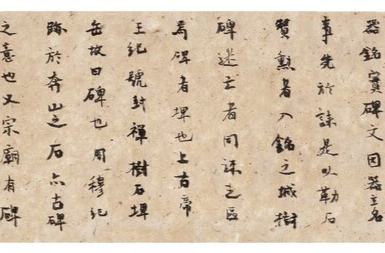 器銘實碑文因器立名
事先於誄是以勒石
贊勳者入銘之域樹
碑述亡者同誄之區
焉碑者埤也上古帝
王紀號封禪樹石埤
岳故曰碑也周穆紀
跡於弇山之石亦古碑
之意也又宗廟有碑